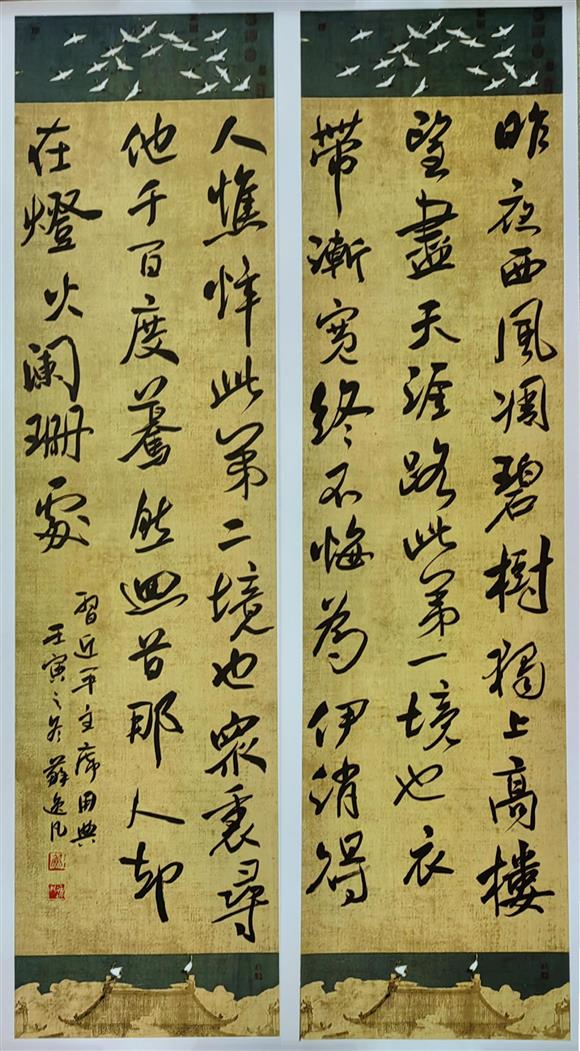 昨夜西風凋碧樹獨上高樓
望盡天涯路此第一境也衣
帶漸寬終不悔為伊消得
人憔悴此第二境也眾裏尋
他千百度驀然迴首那人却
在燈火闌珊處
習近平主席用典
壬寅之冬蘇逸凡